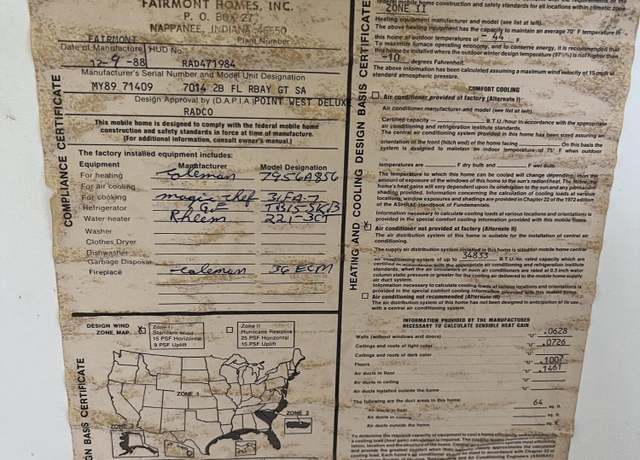 FAIRMONT HOMES, INC.
P. O. BOX 27
NAPPANEE, INDIANA 46550
FAIRMONT
Plant Number
Date of Manufacture HUD No.
12-9-88 RAD471984
Manufacturer's Serial Number and Model Unit Designation
MY89 71409 7014 2B FL RBAY GT SA
Design Approval by (D.A.P.I.A.) POINT WEST DELUX
RADCO
This mobile home is designed to comply with the federal mobile home
construction and safety standards in force at time of manufacture.
(For additional information, consult owner's manual.)
COMPLIANCE CERTIFICATE
The factory installed equipment includes:
Equipment Manufacturer Model Designation
For heating Coleman 7956A856
For air cooling
For cooking magic chef
Refrigerator G.E.
Water heater Rheem
Washer
Clothes Dryer
Dishwasher
Garbage Disposal
Fireplace Coleman 36 ECM
DESIGN WIND
ZONE MAP
Zone I
Standard Wind
15 PSF Horizontal
9 PSF Uplift
Zone II
Hurricane Resistive
25 PSF Horizontal
15 PSF Uplift
ZONE 1
ZONE 2
GN BASIS CERTIFICATE
HEATING AND COOLING DESIGN BASIS CERTIFICATE
mobile home construction and safety standards for all locations within climatic
ZONE II
Heating equipment manufacturer and model (see list at left).
The above heating equipment has the capacity to maintain an average 70° F temperature in
this home at outdoor temperatures of -44 F.
To maximize furnace operating economy, and to conserve energy, it is recommended that
this home be installed where the outdoor winter design temperature (97½%) is not higher than
-10 degrees Fahrenheit.
The above information has been calculated assuming a maximum wind velocity of 15 mph at
standard atmospheric pressure.
COMFORT COOLING
Air conditioner provided at factory (Alternate I)
Air conditioner manufacturer and model (see list at left).
Certified capacity B.T.U./hour in accordance with the appropriate
air conditioning and refrigeration institute standards.
The central air conditioning system provided in this home has been sized assuming an
orientation of the front (hitch end) of the home facing On this basis the
system is designed to maintain an indoor temperature of 75° F when outdoor
temperatures are F dry bulb and F wet bulb.
The temperature to which this home can be cooled will change depending
amount of exposure of the windows of this home to the sun's radiant heat. Therefore, the
home's heat gains will vary dependent upon its orientation to the sun and any permanent
shading provided. Information concerning the calculation of cooling loads at various
locations, window exposures and shadings are provided in Chapter 22 of the 1972 edition
of the ASHRAE Handbook of Fundamentals.
Information necessary to calculate cooling loads at various locations and orientations is
provided in the special comfort cooling information provided with this mobile home.
Air conditioner not provided at factory (Alternate II)
The air distribution system of this home is suitable for the installation of central air
conditioning.
The supply air distribution system installed in this home is sized for mobile home central
air conditioning system of up to 34833 B.T.U./hr. rated capacity which are
certified in accordance with the appropriate air conditioning and refrigeration institute
standards, when the air circulators of such air conditioners are rated at 0.3 inch water
column static pressure or greater for the cooling air delivered to the mobile home supply
air duct system.
Information necessary to calculate cooling loads at various locations and orientations is
provided in the special comfort cooling information provided with this mobile home.
Air conditioning not recommended (Alternate III)
The air distribution system of this home has not been designed in anticipation of its use
with a central air conditioning system.
INFORMATION PROVIDED BY THE MANUFACTURER
NECESSARY TO CALCULATE SENSIBLE HEAT GAIN
Walls (without windows and doors) "U" .0628
Ceilings and roofs of light color "U" .0726
Ceilings and roofs of dark color "U"
Floors "U" .1007
Air ducts in floor "U" .1461
Air ducts in ceiling "U"
Air ducts installed outside the home "U"
The following are the duct areas in this home:
Air ducts in floor 64 sq. ft.
Air ducts in ceiling sq. ft.
Air ducts outside the home sq. ft.